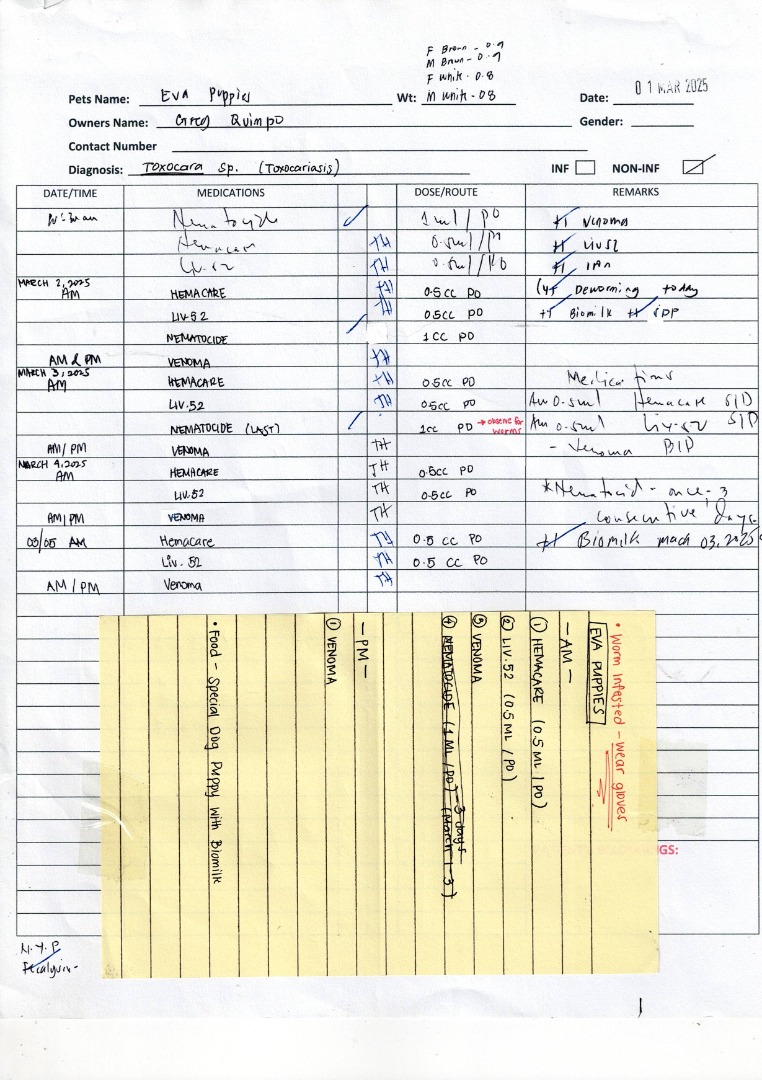 F Brown - 0.9
M Brown - 0.9
F White - 0.8
Pets Name: EVA Puppies Wt: M White - 0.8 Date: 01 MAR 2025
Owners Name: Greg Quimpo Gender:
Contact Number
Diagnosis: Toxocara sp. (Toxocariasis) INF NON-INF
DATE/TIME MEDICATIONS DOSE/ROUTE REMARKS
Nematocyde 1ml / PO #1 Venoma
Hemacare TH 0.5ml / PO #1 Liv52
Liv-52 TH 0.5ml / PO #1
MARCH 2, 2025
AM HEMACARE TH 0.5CC PO Deworming today
LIV.52 TH 0.5CC PO Biomilk SDP
NEMATOCIDE 1CC PO
AM & PM VENOMA TH
MARCH 3, 2025
AM HEMACARE TH 0.5CC PO Medications
LIV.52 TH 0.5CC PO Am 0.5ml Hemacare SID
NEMATOCIDE (LAST) 1CC PO → observe for worms Am 0.5ml Liv-52 SID
AM/PM VENOMA TH - Venoma BID
MARCH 4, 2025
AM HEMACARE TH 0.5CC PO
LIV.52 TH 0.5CC PO *Nematocid - once - 3
AM/PM VENOMA TH consecutive days
03/05 AM Hemacare TH 0.5 CC PO Biomilk mach 03, 2025
Liv. 52 TH 0.5 CC PO
AM / PM Venoma TH
• Worm Infested - wear gloves
EVA PUPPIES
- AM -
① HEMACARE (0.5 ML / PO)
② LIV.52 (0.5 ML / PO)
③ VENOMA
④ NEMATOCIDE (1 ML / PO) - 3 days (March 1-3)
- PM -
① VENOMA
• Food - Special Dog Puppy with Biomilk
GS:
N.Y.P
Fecalysis -